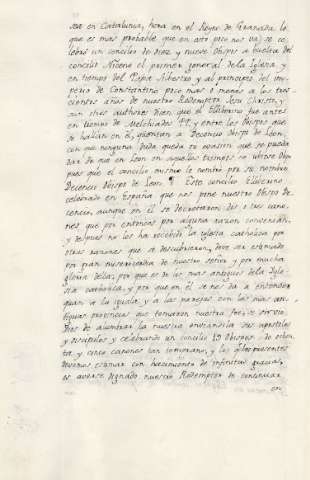 sea en Catalunia, hora en el Reyno de Granada lo
que es mas probable que en año poco mas se ce
lebró un concilio de diez y nueve Obispos a bueltas del
concilio Niceno el primero general de la Iglesia y
en tiempo del Papa Silvestro y al principio del im-
perio de Constantino poco mas o menos a los tres-
cientos años de nuestro Redemptor Jesu Christo, y
aun otros authores dicen que el Eliberino fue antes
en tiempo de Melchiades PP, y entre los Obispos que
se hallan en él, quentan a Decencio Obispo de Leon,
con que ninguna duda queda ni evasion que se pueda
dar de que en Leon en aquellos tiempos no ubiese Obis-
pos que el concilio mismo le nombró por su nombre
Decencio Obispo de Leon. Este concilio Eliberino
celebrado en España que nos pone nuestro Obispo De-
cencio, aunque en él se decretaron dos o tres cano-
nes que por entonces por alguna razon convenian,
y despues no los ha recebido la iglesia catholica por
otras razones que se descubrieron, debe ser estimado
por gran misericordia de nuestro señor y por mucha
gloria della, por que es de los mas antiguos de la Igle-
sia catholica, y por que en él se nos da a entender
quan a la iguala y a las parejas con las mas anti-
guas provincias que tomaron nuestra fee, se sirvio
Dios de alumbrar la nuestra enviandola sus apostoles
y discipulos y celebrando un concilio 19 Obispos de ochen-
ta, y cinco canones tan temprano, y los presentes
devemos estimar con hacimiento de infinitas gracias,
es averse dignado nuestro Redemptor de continuar
en